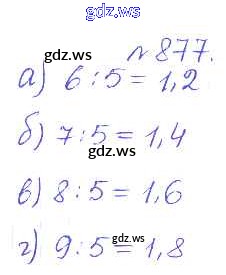 gdz.ws
gdz.ws № 877.
а) 6 : 5 = 1,2
б) 7 : 5 = 1,4
gdz.ws
в) 8 : 5 = 1,6
г) 9 : 5 = 1,8
gdz.ws